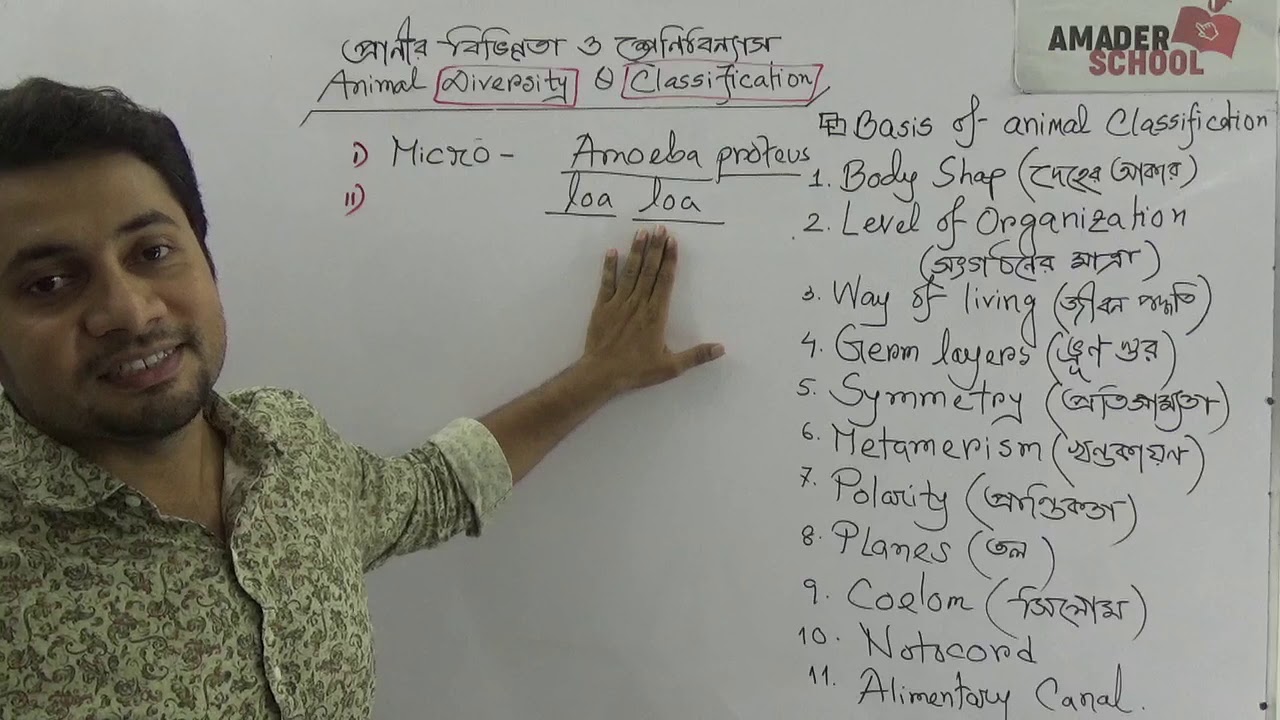 প্রানীর বিভিন্নতা ও শ্রেনিবিন্যাস
Animal Diversity ও Classification
i) Micro - Amoeba proteus
ii) loa loa
AMADER
SCHOOL
Basis of animal Classification
1. Body Shap (দেহের আকার)
2. Level of Organization
(সংগঠনের মাত্রা)
3. Way of living (জীবন পদ্ধতি)
4. Germ layers (ভ্রূণ স্তর)
5. Symmetry (প্রতিসাম্যতা)
6. Metamerism (খন্ডকায়ন)
7. Polarity (প্রান্তিকতা)
8. Planes (তল)
9. Coelom (সিলোম)
10. Notocord
11. Alimentary Canal.